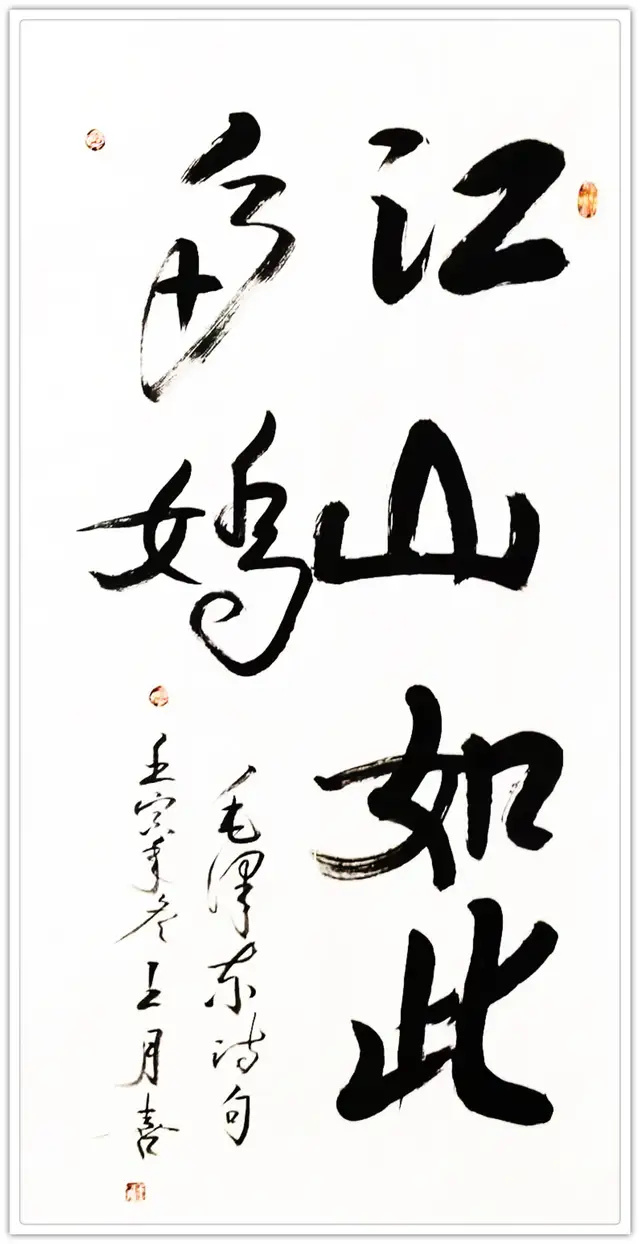 江山如此
多娇
毛泽东诗句
壬寅年冬王月喜